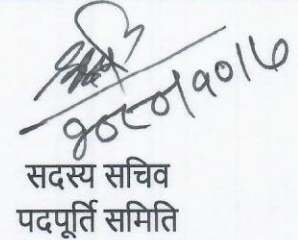 २०८०।१०।६
सदस्य सचिव
पदपूर्ति समिति